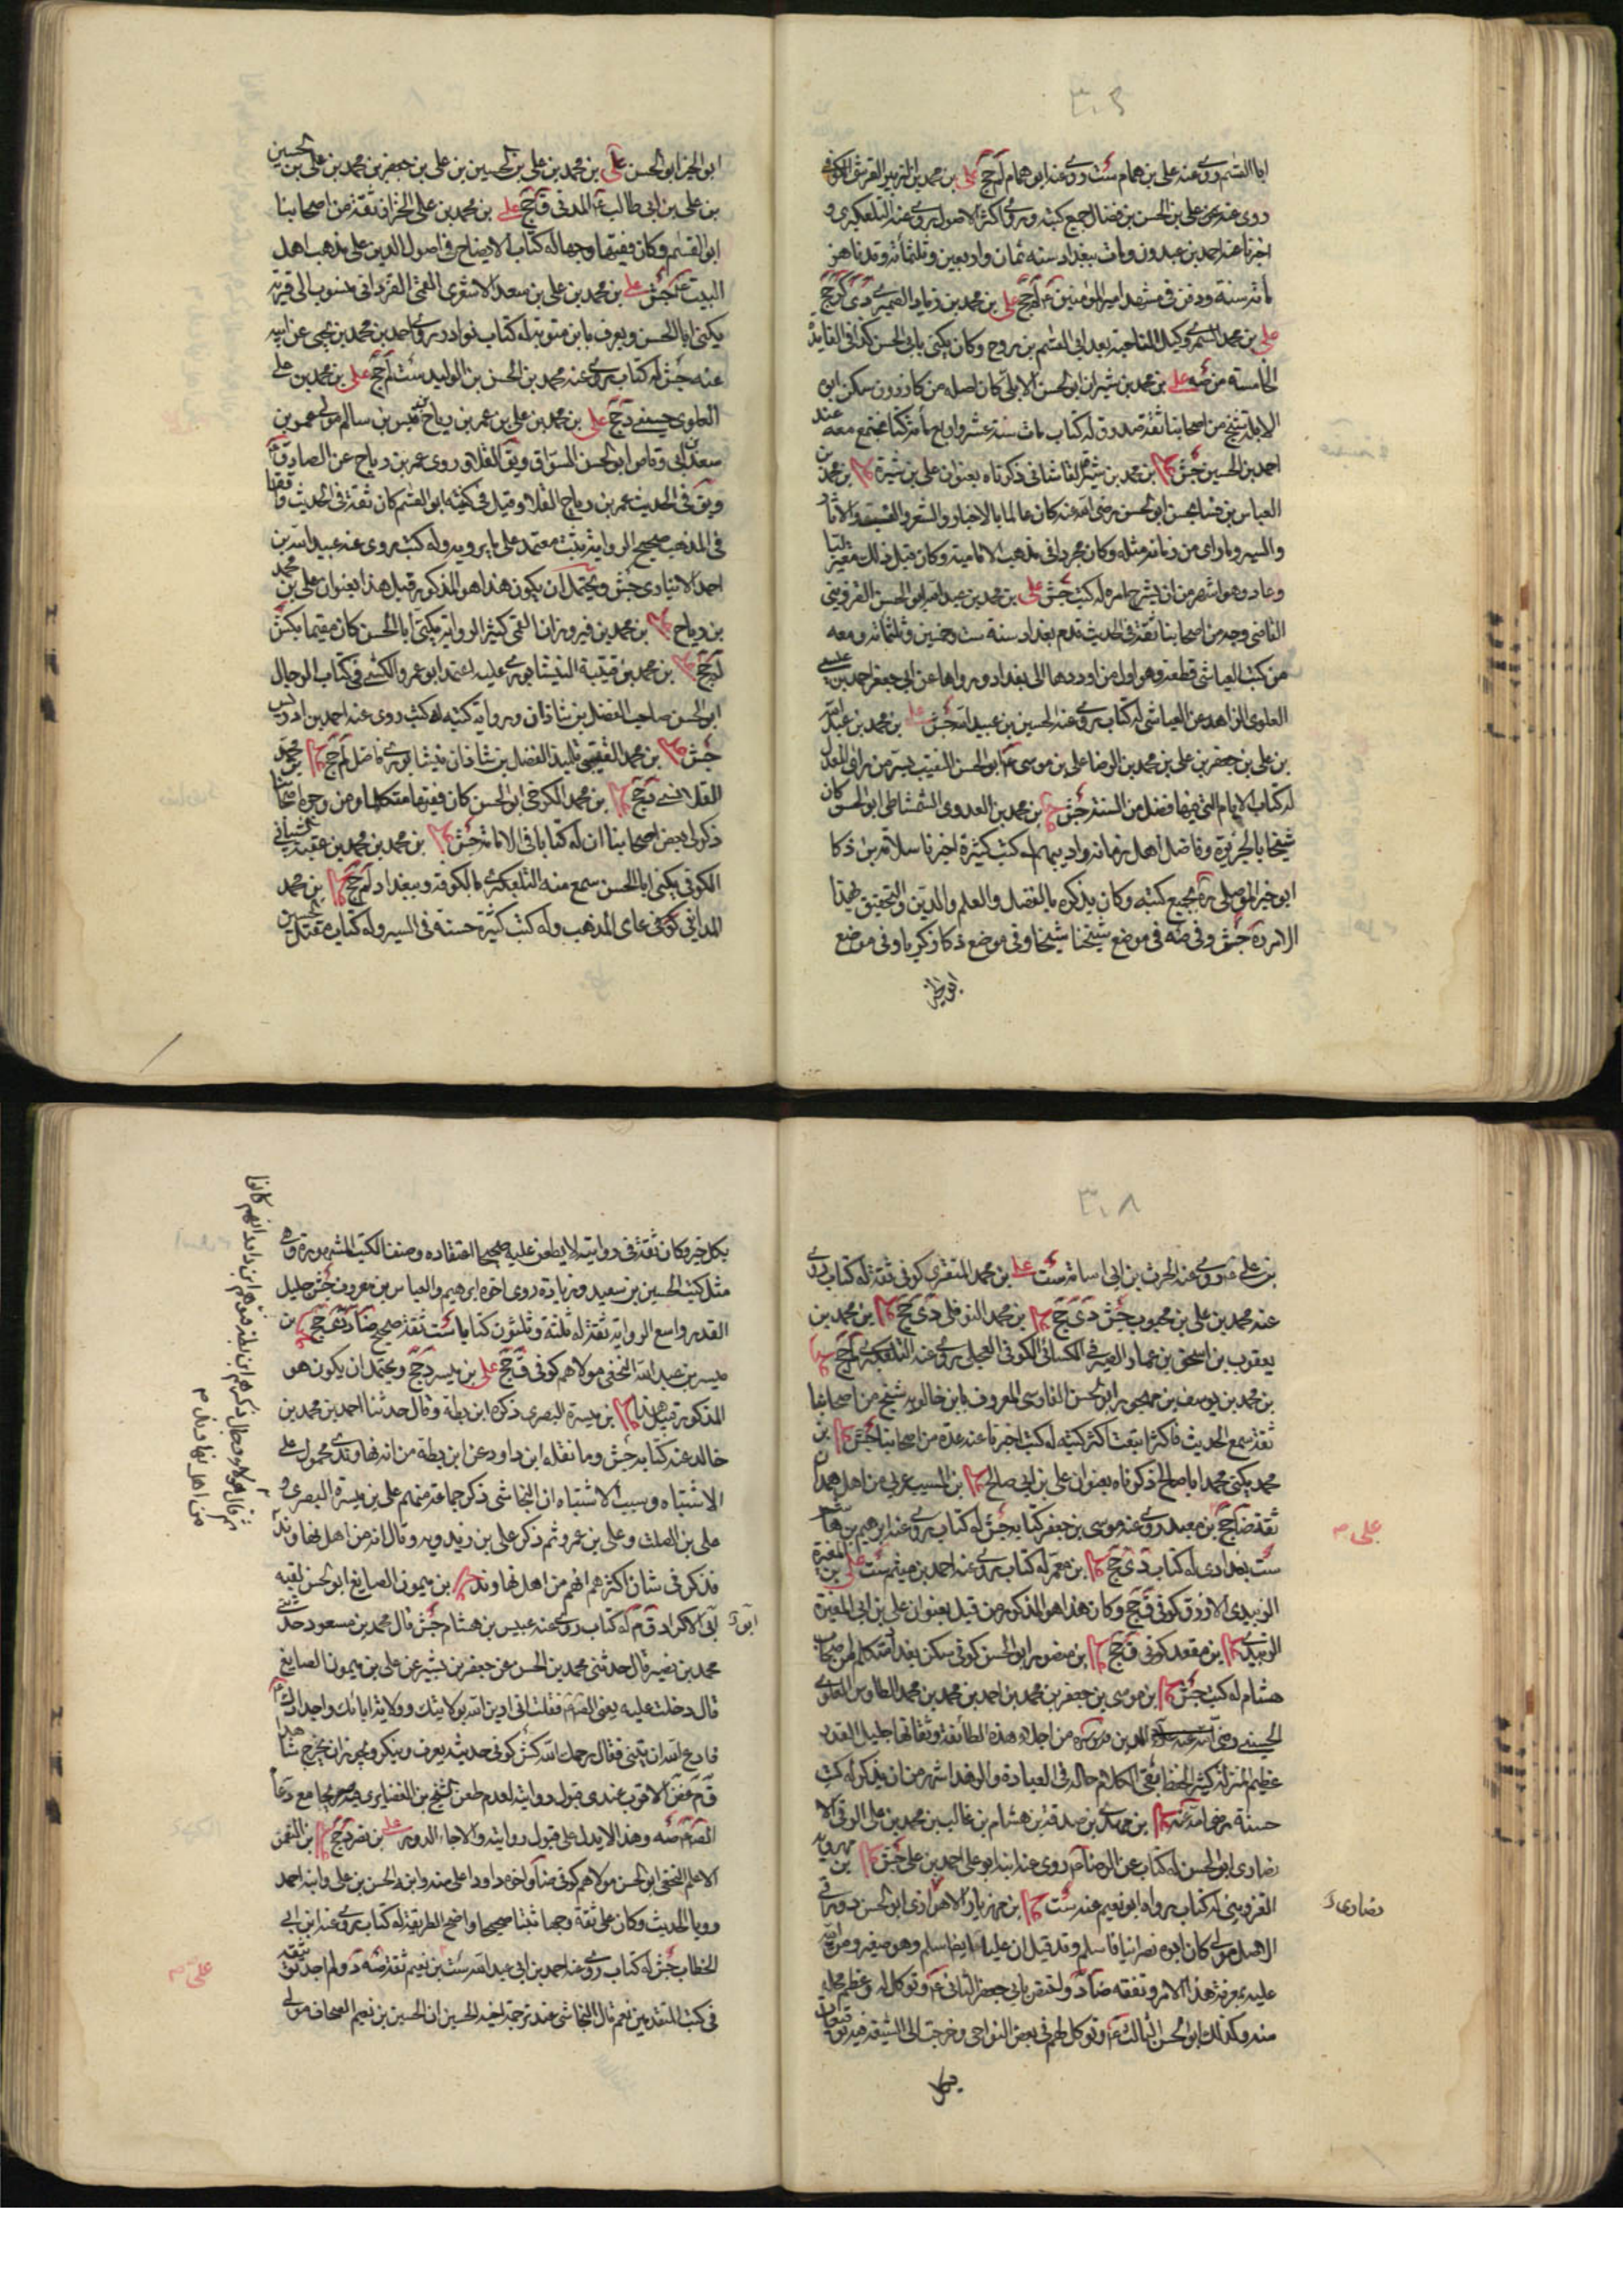 ٣٠٤
ابا القسم روى عنه على بن همام ست روى عنه ابن همام لم جخ على بن محمد بن الزبير القرشى الكوفى
روى عن على بن الحسن بن فضال جميع كتبه وروى اكثر الاصول روى عنه التلعكبرى و
اخبرنا عنه احمد بن عبدون ومات ببغداد سنه ثمان واربعين وثلثمائة وقد ناهز
مائة سنة ودفن فى مشهد امير المؤمنين ع لم جخ على بن محمد بن زياد الصيمرى دى كر جخ
على بن محمد السمرى وكيل الناحية بعد ابى القسم بن روح وكان يكنى بابى الحسن كذا فى الفايدة
الخامسة من صه على بن محمد بن شيران ابو الحسن الابلى كان اصله من كازرون سكن ابوه
الابلة شيخ من اصحابنا ثقة صدوق له كتاب مات سنة عشر واربع مائة كنا نجتمع معه عند
احمد بن الحسين جش على بن محمد بن شيرة القاشانى ذكرناه بعنوان على بن شيرة على بن محمد بن
العباس بن فسابحس ابو الحسن رضى الله عنه كان عالما بالاخبار والشعر والنسب والاثار
والسير وما راى من زمانه مثله وكان مجردا فى مذهب الامامية وكان قبل ذلك معتزليا
وعاد وهو اشهر من ان يشرح امره له كتب جش على بن محمد بن عبد الله ابو الحسن القزوينى
القاضى وجه من اصحابنا ثقة فى الحديث قدم بغداد سنة ست وخمسين وثلثمائة ومعه
من كتب العياشى قطعة وهو اول من اوردها الى بغداد ورواها عن ابى جعفر احمد بن عيسى
العلوى الزاهد عن العياشى له كتاب روى عنه الحسين بن عبيد الله جش على بن محمد بن عبد الله
بن على بن جعفر بن على بن محمد بن الرضا على بن موسى ع ابو الحسن النقيب بسر من راى المعدل
له كتاب الايام التى فيها فضل من السنة جش على بن محمد بن العدوى الشمشاطى ابو الحسن كان
شيخا بالجزيرة وفاضل اهل زمانه واديبهم له كتب كثيرة اخبرنا سلامة بن ذكا
ابو خير الموصلى ره بجميع كتبه وكان يذكره بالفضل والعلم والدين والتحقيق بهذا
الامر ره جش وفى صه فى موضع شيخنا شيخا وفى موضع ذكا زكريا وفى موضع
ابو الخير
ابو الخير ابو الحسن على بن محمد بن على بن الحسين بن على بن جعفر بن محمد بن على بن الحسين
بن على بن ابى طالب ع المدنى ق جخ على بن محمد بن على الخزاز ثقة من اصحابنا
ابو القسم وكان فقيها وجها له كتاب الايضاح فى اصول الدين على مذهب اهل
البيت ع جش على بن محمد بن على بن سعد الاشعرى القمى القزدانى منسوب الى قرية
يكنى ابا الحسن ويعرف بابن متويه له كتاب نوادر روى احمد بن محمد بن يحيى عن ابيه
عنه جش له كتاب روى عنه محمد بن الحسن بن الوليد ست لم جخ على بن محمد بن على
العلوى حسينى د جخ على بن محمد بن على بن عمر بن رياح بن قيس بن سالم مولى عمر بن
سعد بن ابى وقاص ابو الحسن السواق ويق القلا روى عمر بن رياح عن الصادق ع
ويق فى الحديث عمر بن رياح القلا وقيل فى كنيته ابو القسم كان ثقة فى الحديث واقفا
فى المذهب صحيح الرواية ثبت معتمد على ما يرويه وله كتب روى عنه عبيد الله بن
احمد الانبارى جش ويحتمل ان يكون هذا هو المذكور قبيل هذا بعنوان على بن محمد
بن رياح على بن محمد بن فيروزان القمى كثير الرواية يكنى ابا الحسن كان مقيما بكش
لم جخ على بن محمد بن قتيبة النيشابورى عليه اعتمد ابو عمرو الكشى فى كتاب الرجال
ابو الحسن صاحب الفضل بن شاذان ورواية كتبه له كتب روى عنه احمد بن ادريس
جش على بن محمد القتيبى تلميذ الفضل بن شاذان نيشابورى فاضل لم جخ على بن محمد
القلانسى د جخ على بن محمد الكرخى ابو الحسن كان فقيها متكلما ومن وجوه اصحابنا
ذكر لى بعض اصحابنا ان له كتابا فى الامامة جش على بن محمد بن محمد بن عقبة الشيبانى
الكوفى يكنى ابا الحسن سمع منه التلعكبرى بالكوفة وببغداد لم جخ على بن محمد
المداينى كوفى عامى المذهب وله كتب كثيرة حسنة فى السير وله كتاب مقتل الحسين
٣٠٨
بن على ع روى عنه الحرث بن ابى اسامة ست على بن محمد المنقرى كوفى ثقة له كتاب روى
عنه محمد بن على بن محبوب جش دى جخ على بن محمد النوفلى دى جخ على بن محمد بن
يعقوب بن اسحق بن عمار الصيرفى الكسائى الكوفى العجلى روى عنه التلعكبرى لم جخ على
بن محمد بن يوسف بن مهجور ابو الحسن الفارسى المعروف بابن خالويه شيخ من اصحابنا
ثقة سمع الحديث فاكثر ابتعت اكثر كتبه له كتب اخبرنا عنه عدة من اصحابنا جش على بن
محمد يكنى محمد ابا صالح ذكرناه بعنوان على بن ابى صالح على بن المسيب عربى من اهل همدان
ثقة ضا جخ على بن معبد روى عنه موسى بن جعفر كتابه جش له كتاب روى عنه ابرهيم بن هاشم
على م
ست بغدادى له كتاب دى جخ على بن معمر له كتاب روى عنه احمد بن ميثم ست على بن المغيرة
الزبيدى الازرق كوفى ق جخ وكان هذا هو المذكور من قبل بعنوان على بن ابى المغيرة
الزبيدى على بن مقعد كوفى ق جخ على بن منصور ابو الحسن كوفى سكن بغداد متكلم من اصحاب
هشام له كتب جش على بن موسى بن جعفر بن محمد بن احمد بن محمد بن محمد الطاوس العلوى
الحسينى رضى الدين قدس سره من اجلاء هذه الطائفة وثقاتها جليل القدر
عظيم المنزلة كثير الحفظ نقى الكلام حاله فى العبادة والزهد اشهر من ان يذكر له كتب
حسنة رضى الله عنه على بن مهدى بن صدقة بن هشام بن غالب بن محمد بن على الرقى الا
نصارى ابو الحسن له كتاب عن الرضا ع روى عنه ابنه ابو على احمد بن على جش على بن مهرويه
القزوينى له كتاب رواه ابو نعيم عنه ست على بن مهزيار الاهوازى ابو الحسن دورقى
نصارى د
الاصل مولى كان ابوه نصرانيا فاسلم وقد قيل ان عليا ايضا اسلم وهو صغير ومن الله
عليه بمعرفة هذا الامر وتفقه ضا د واختص بابى جعفر الثانى ع وتوكل له وعظم محله
منه وكذلك ابو الحسن الثالث ع وتوكل لهم فى بعض النواحى وخرجت الى الشيعة فيه توقيعات
بكل
بكل خير وكان ثقة فى روايته لا يطعن عليه صحيحا اعتقاده وصنف الكتب المشهورة وهى
مثل كتب الحسين بن سعيد وزيادة روى اخوه ابرهيم والعباس بن معروف جش جليل
القدر واسع الرواية ثقة له ثلثة وثلثون كتابا ست ثقة صحيح ضا د دى جخ على بن
ميسر بن عبد الله النخعى مولاهم كوفى ق جخ على بن ميسر د جخ ويحتمل ان يكون هو
المذكور قبيل هذا على بن ميسرة البصرى ذكره ابن بطة وقال حدثنا احمد بن محمد بن
خالد عنه كتابه جش وما نقله ابن داود عن ابن بطة من انه نهاوندى محمول على
الاشتباه وسبب الاشتباه ان النجاشى ذكر جماعة منهم على بن ميسرة البصرى و
على بن الصلت وعلى بن عمر وثم ذكر على بن زيدويه وقال انه من اهل نهاوند
فذكر فى شان اكثرهم انهم من اهل نهاوند على بن ميمون الصايغ ابو الحسن لقبه
ابو الاكراد ق م له كتاب روى عنه عبيس بن هشام جش قال محمد بن مسعود حدثنى
ابو د
محمد بن نصير قال حدثنى محمد بن الحسن عن جعفر بن بشير عن على بن ميمون الصايغ
قال دخلت عليه يعنى الص ع فقلت انى ادين الله بولايتك وولاية ابائك واجدادك ع
فادع الله ان يثبتنى فقال رحمك الله كش كوفى حديثه يعرف وينكر ويجوز ان يخرج شاهدا
ق م غض الاقرب عندى قبول روايته لعدم طعن الشيخ بن الغضايرى فيه صريحا مع دعاء
الص ع صه وهذا لا يدل على قبول روايته والا جاء الدور على بن نصر د جخ على بن النعمن
الاعلم النخعى ابو الحسن مولاهم كوفى ضا واخوه داود اعلى منه وابنه الحسن بن على وابنه احمد
رويا الحديث وكان على ثقة وجها ثبتا صحيحا واضح الطريقة له كتاب روى عنه ابن ابى
الخطاب جش له كتاب روى عنه احمد بن ابى عبد الله ست بن نعيم ثقة صه د ولم اجد توثيقه
على م
فى كتب المتقدمين نعم قال النجاشى عند ترجمة اخيه الحسين ان الحسين بن نعيم الصحاف مولى